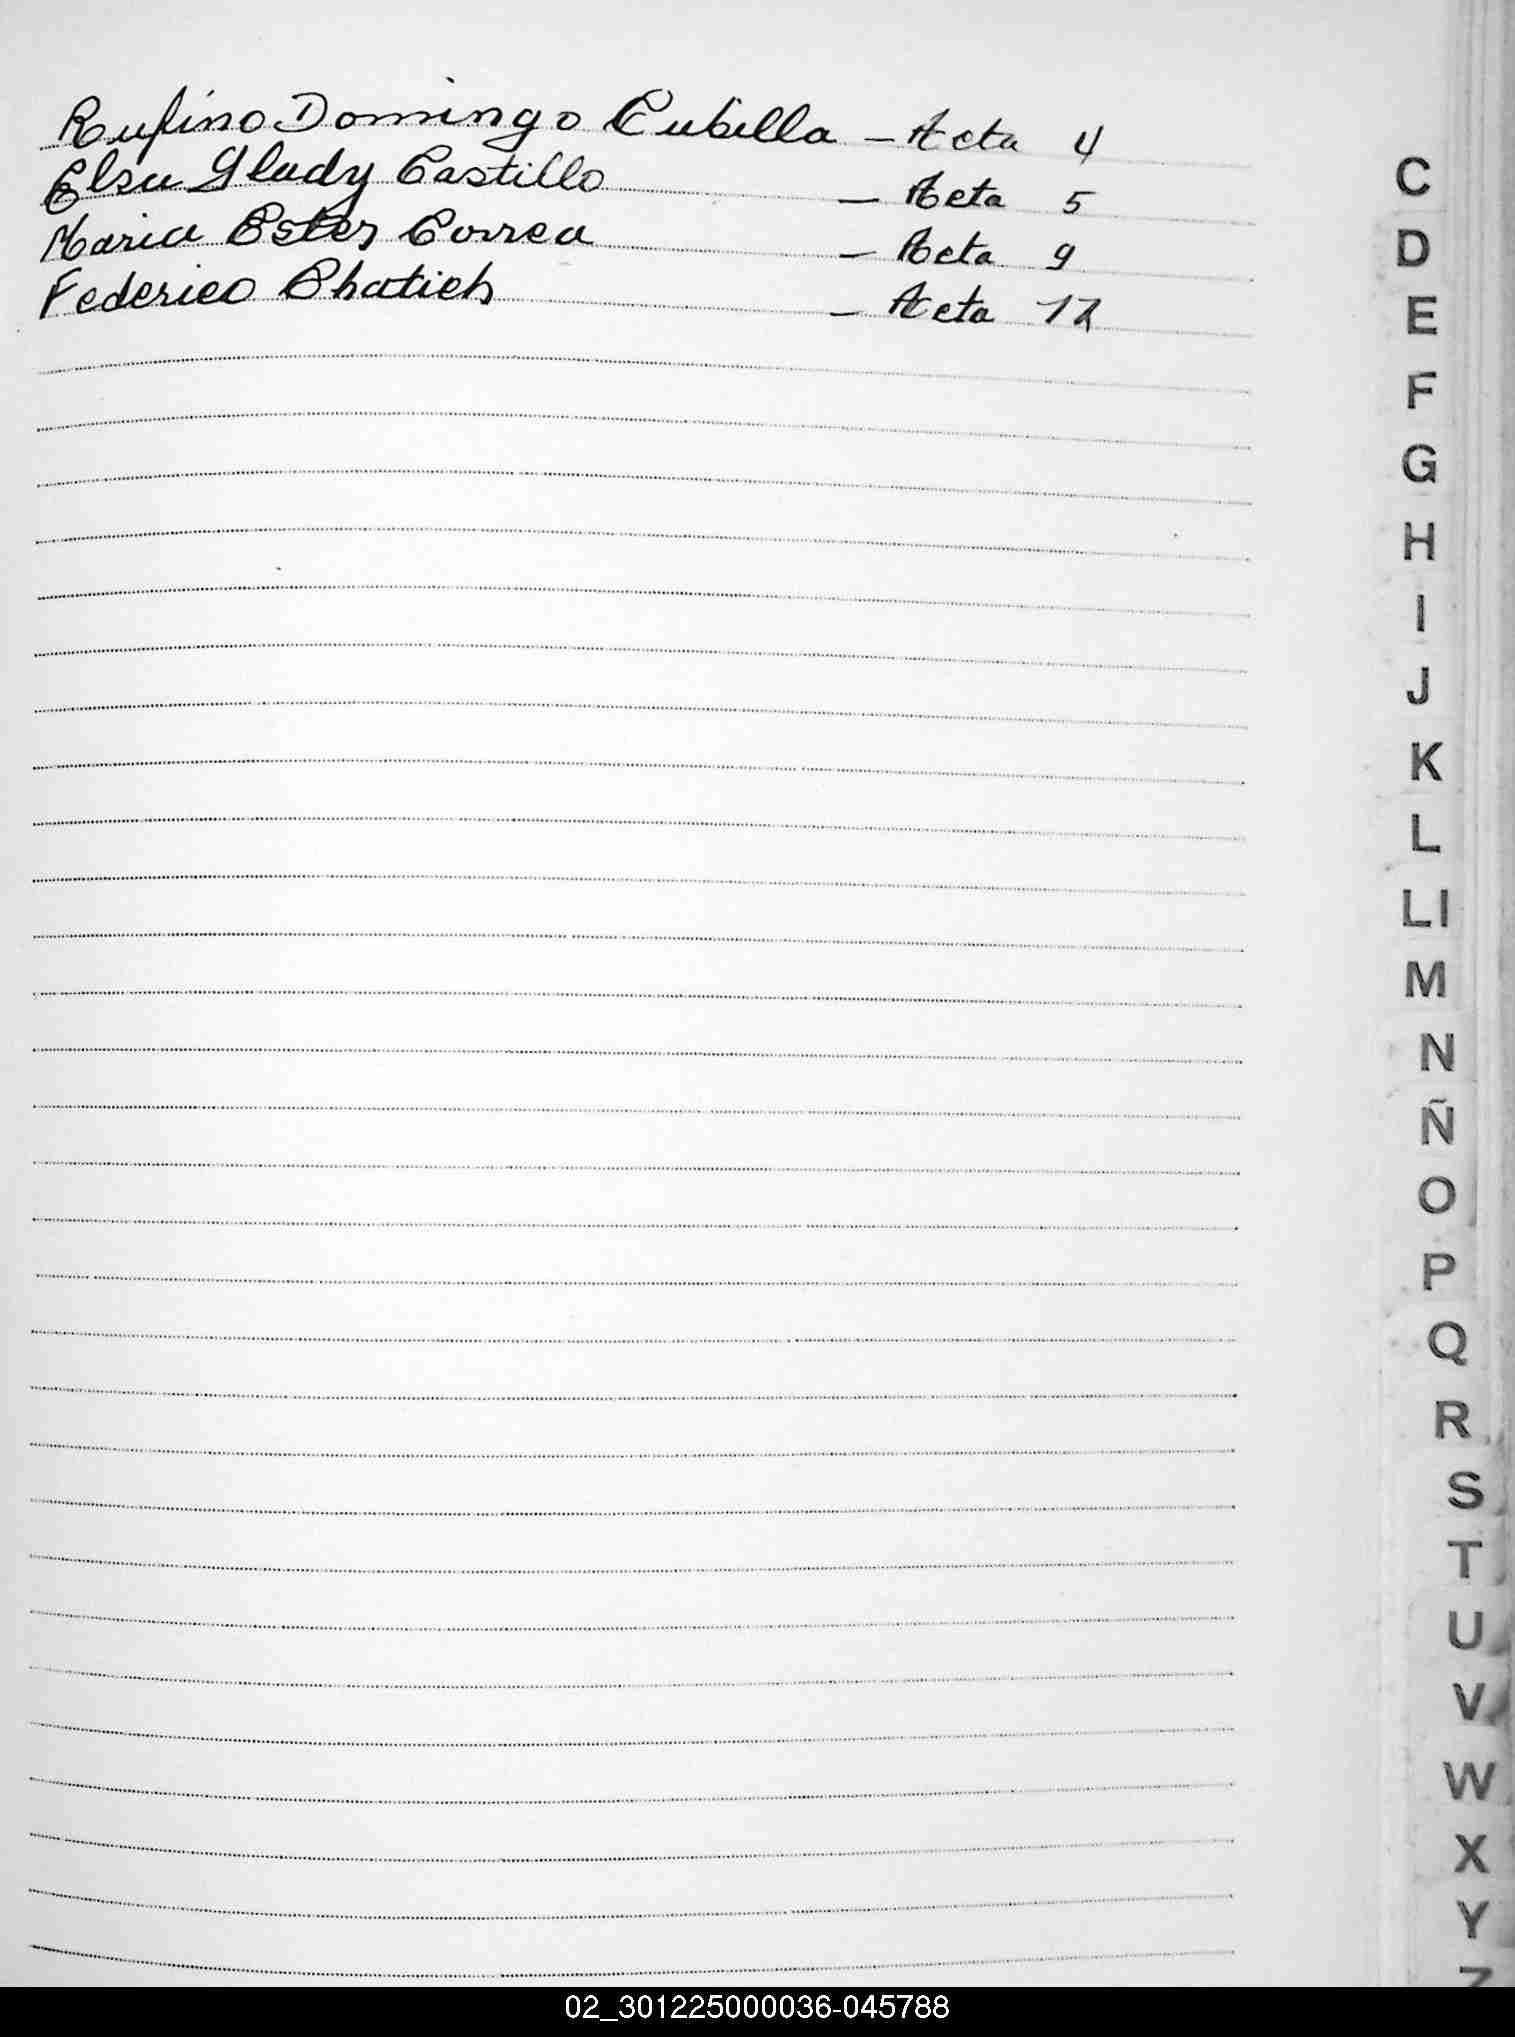 Rufino Domingo Cubilla – Acta 4
Elsa Glady Castillo – Acta 5
Maria Ester Correa – Acta 9
Federico Chatich – Acta 12
C
D
E
F
G
H
I
J
K
L
Ll
M
N
Ñ
O
P
Q
R
S
T
U
V
W
X
Y
Z
02_301225000036-045788